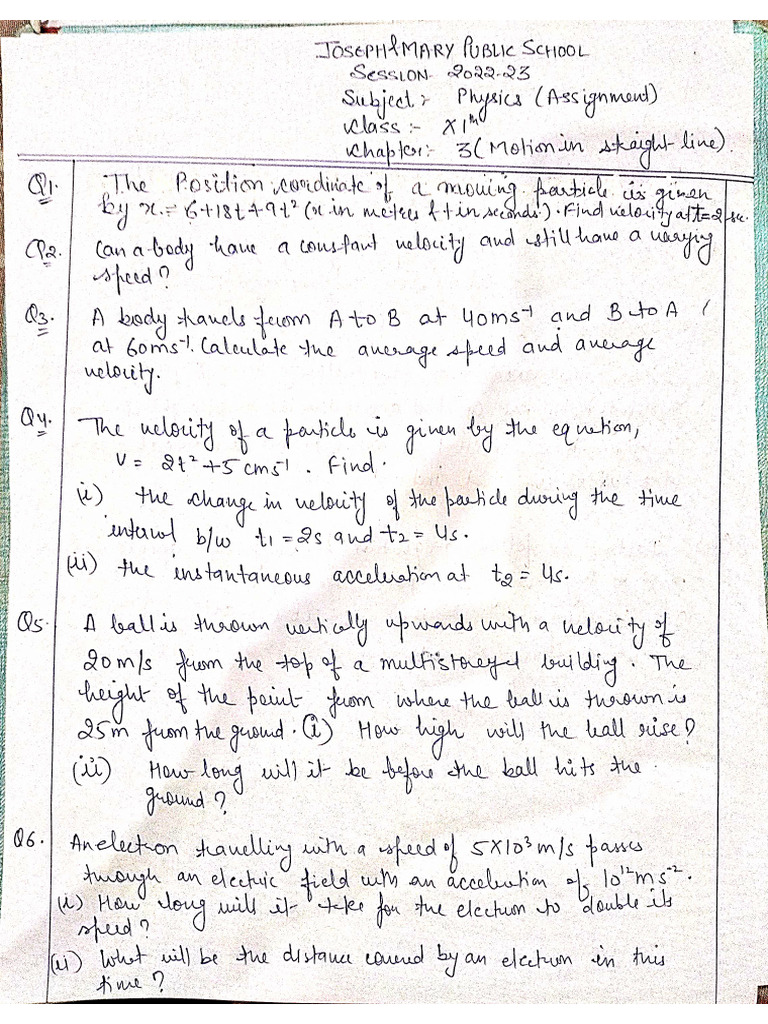 JOSEPH & MARY PUBLIC SCHOOL
SESSION- 2022-23
Subject:- Physics (Assignment)
Class:- XIth
Chapter:- 3 (Motion in straight-line)
Q1. The Position coordinate of a moving particle is given
by x = 6+18t+9t² (x in metres & t in seconds). Find velocity at t=2 sec.
Q2. Can a body have a constant velocity and still have a varying
speed?
Q3. A body travels from A to B at 40ms⁻¹ and B to A
at 60ms⁻¹. Calculate the average speed and average
velocity.
Q4. The velocity of a particle is given by the equation,
v = 2t²+5 cms⁻¹. Find.
(i) the change in velocity of the particle during the time
interval b/w t1 = 2s and t2 = 4s.
(ii) the instantaneous acceleration at t2 = 4s.
Q5. A ball is thrown vertically upwards with a velocity of
20m/s from the top of a multistoreyed building. The
height of the point from where the ball is thrown is
25m from the ground. (i) How high will the ball rise?
(ii) How long will it be before the ball hits the
ground?
Q6. An electron travelling with a speed of 5×10³ m/s passes
through an electric field with an acceleration of 10¹² ms⁻².
(i) How long will it take for the electron to double its
speed?
(ii) What will be the distance covered by an electron in this
time?